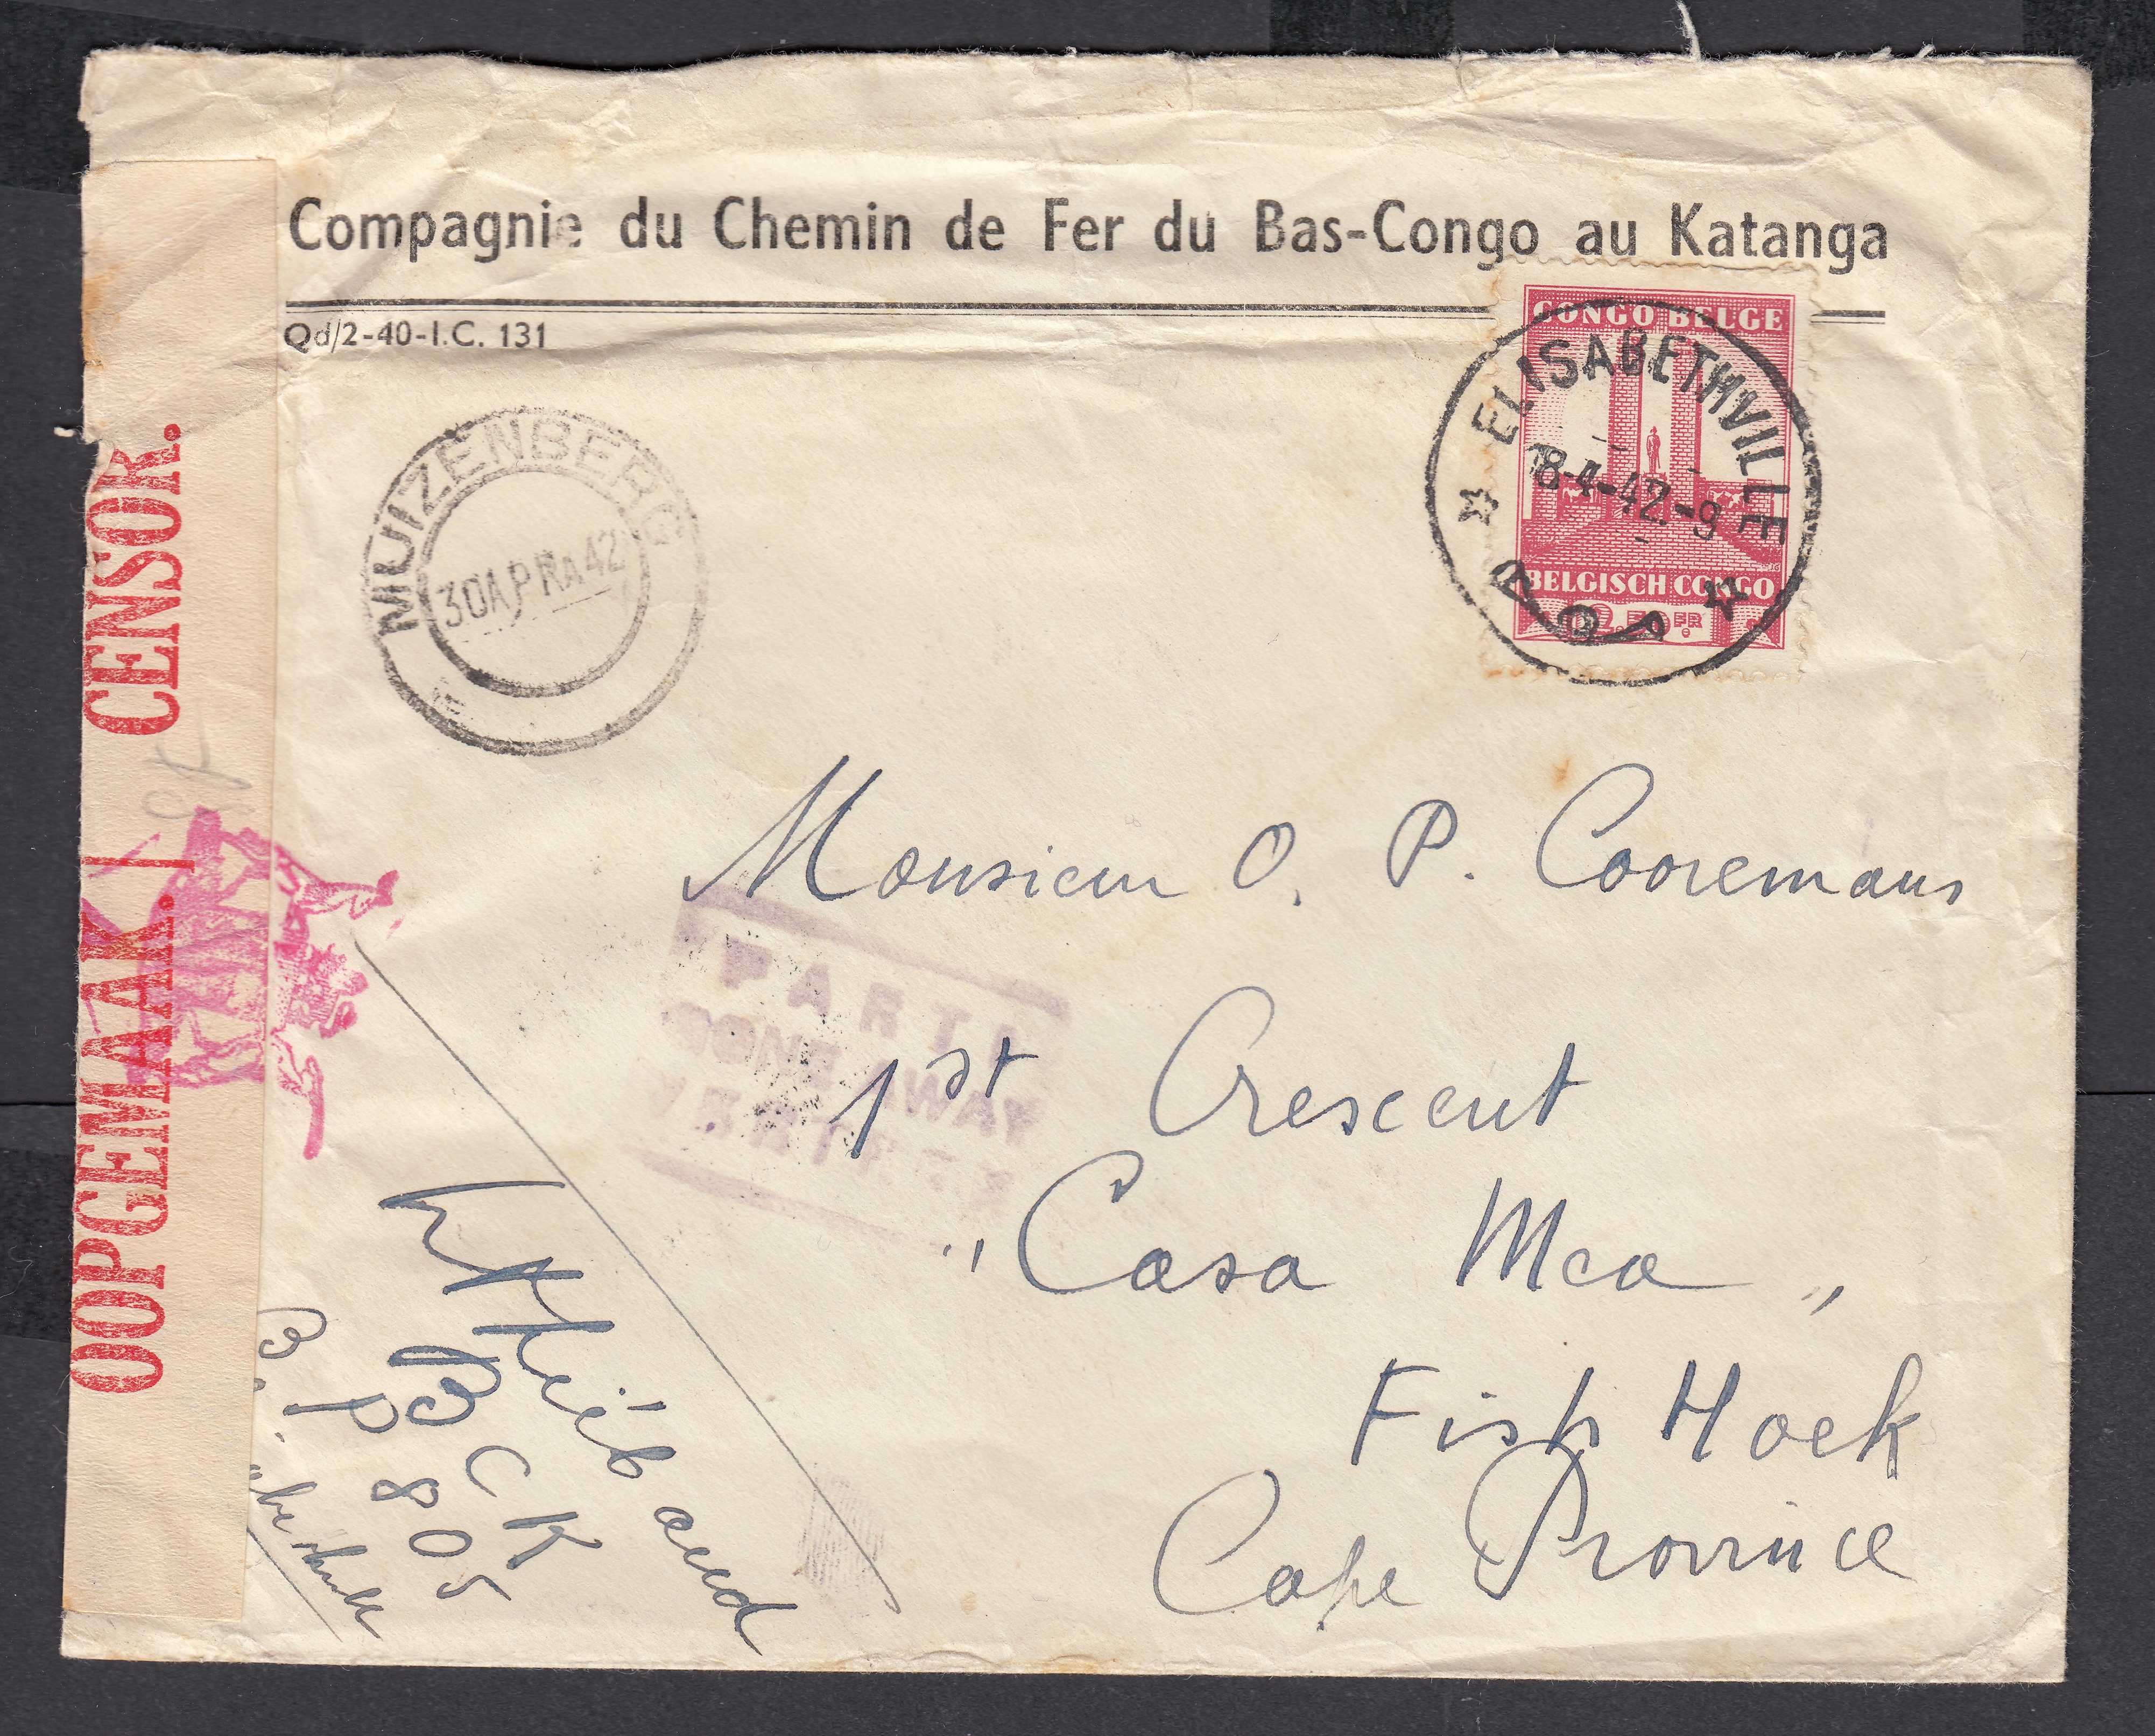 Compagnie du Chemin de Fer du Bas-Congo au Katanga
Qd/2-40-I.C. 131
CONGO BELGE
BELGISCH CONGO
2.50 FR
ELISABETHVILLE
8-4-42-9
MUIZENBERG
30 APR A 42
CENSOR.
OOPGEMAAK.
Monsieur O. P. Cooremans
1st Crescent
"Casa Mea"
Fish Hoek
Cape Province
BCK
B.P. 805